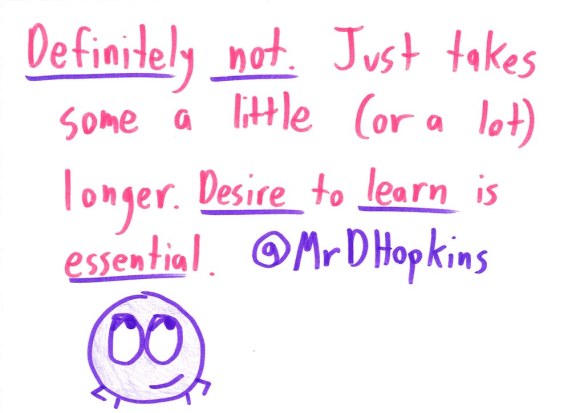 Definitely not. Just takes
some a little (or a lot)
longer. Desire to learn is
essential. @MrDHopkins